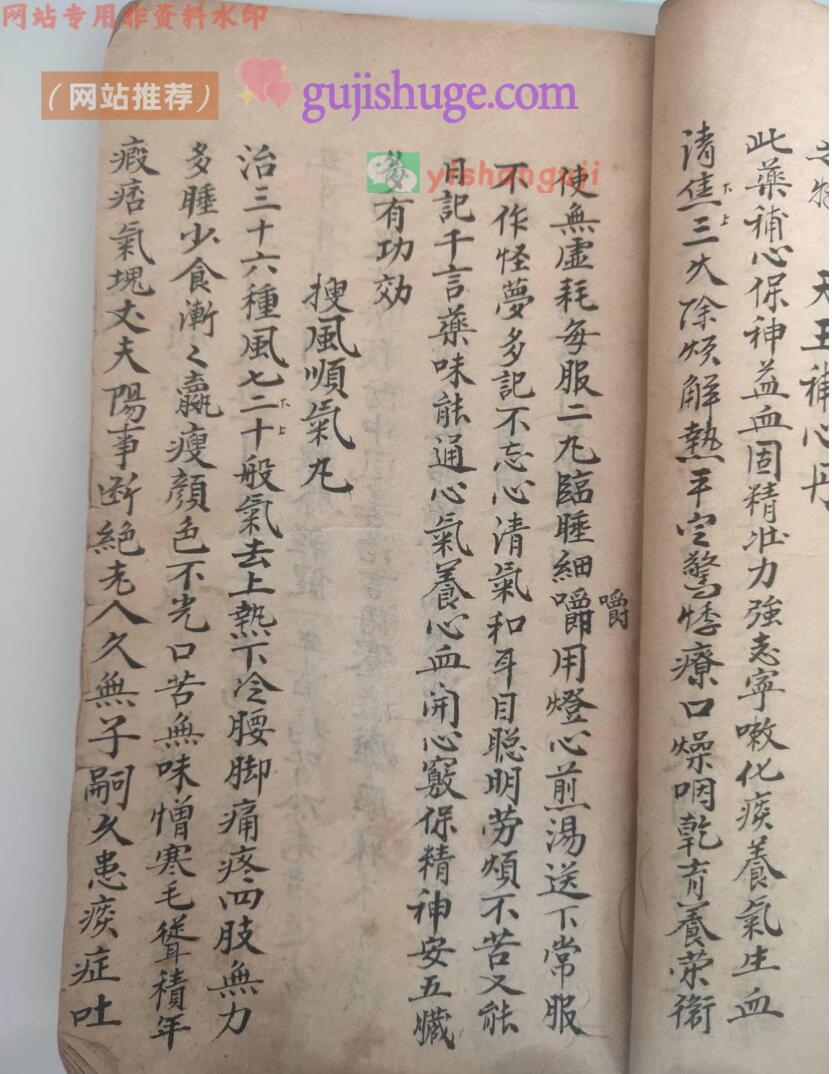 网站专用非资料水印
（网站推荐）
gujishuge.com
yishanguji
天王補心丹
此藥補心保神益血固精壯力強志寧嗽化痰養氣生血
清焦三火除煩解熱平定驚悸療口燥咽乾育養荣衛
下上
使無虛耗每服二九臨睡細嚼用燈心煎湯送下常服
嚼
不作怪夢多記不忘心清氣和耳目聪明劳煩不苦又能
日記千言藥味能通心氣養心血開心竅保精神安五臟
有功効
搜風順氣丸
治三十六種風七二十般氣去上熱下冷腰脚痛疼四肢無力
下上
多睡少食漸々羸瘦顏色不光口苦無味憎寒毛聳積年
癥痞氣塊丈夫陽事断絕老人久無子嗣久患痰症吐